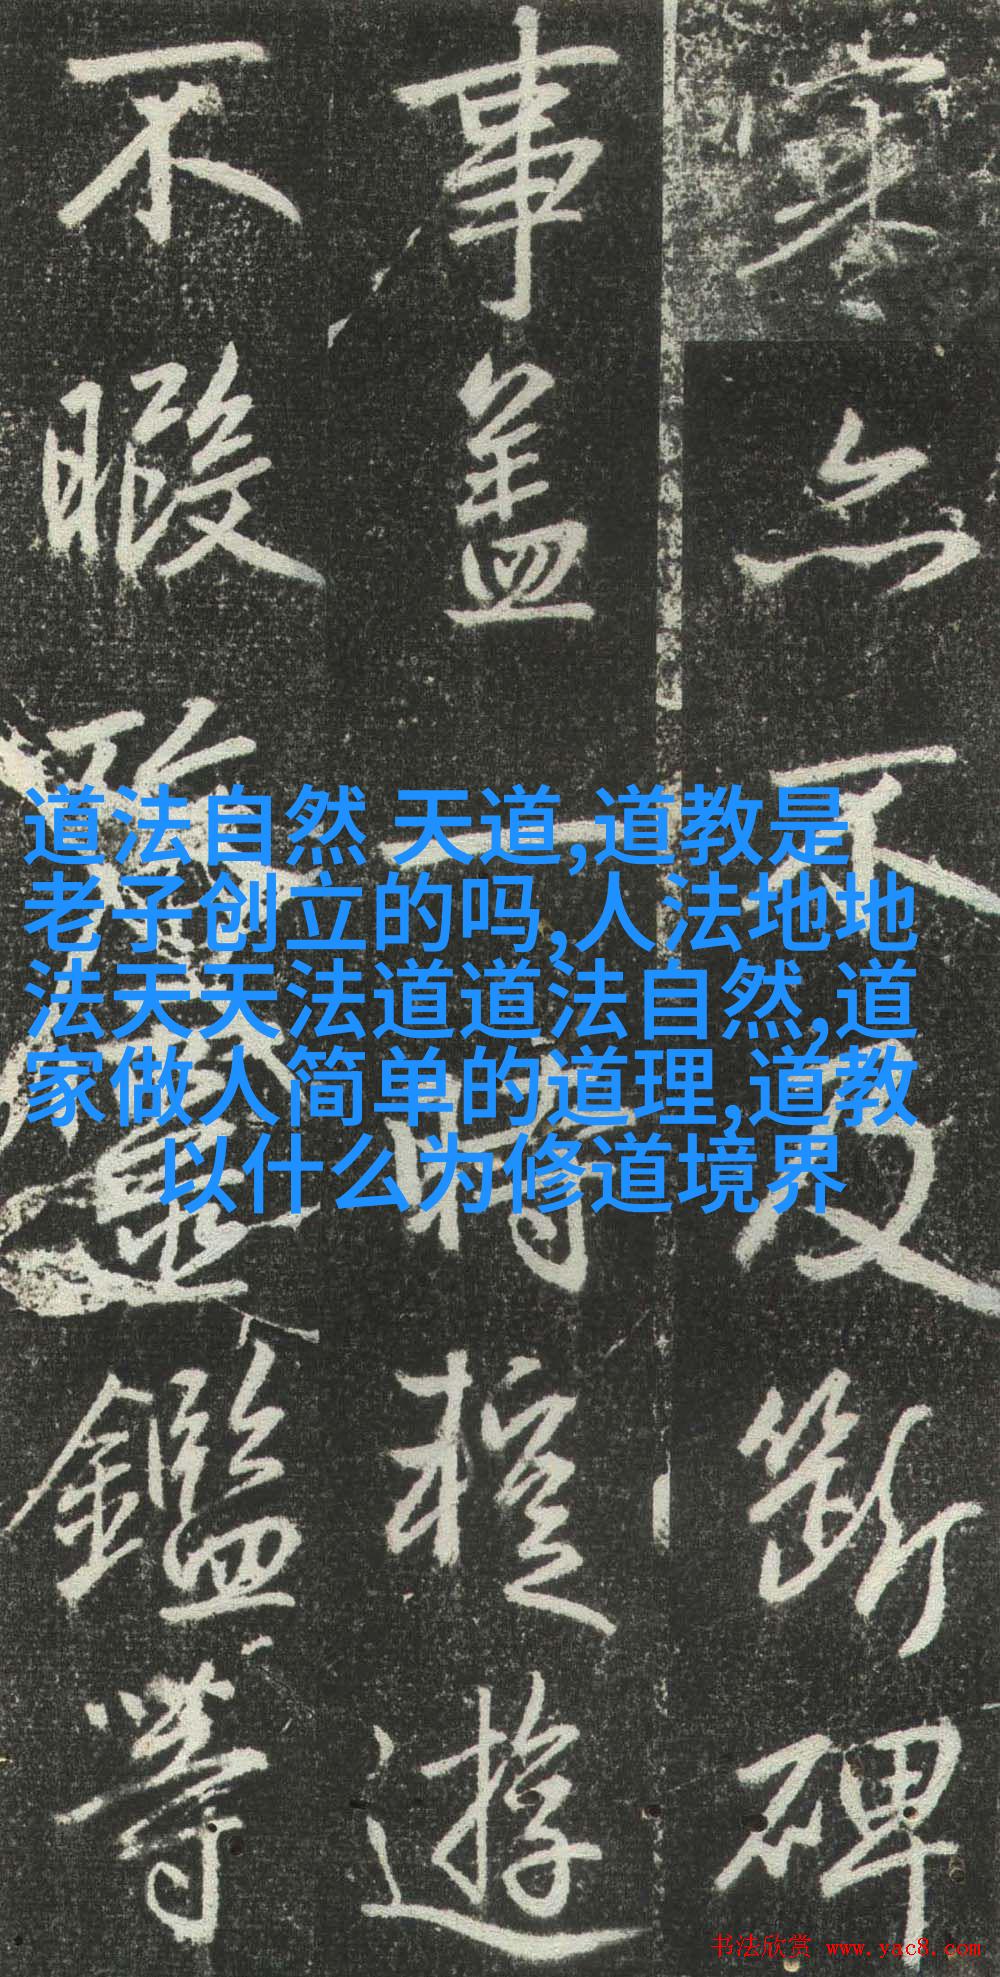 道法自然 天道,道教是
老子创立的吗,人法地地
法天天法道道法自然,道
家做人简单的道理,道教
以什么为修道境界
亦不及斷碑
事盖一時遊
不暇鑑等
书法欣赏 www.yac8.com